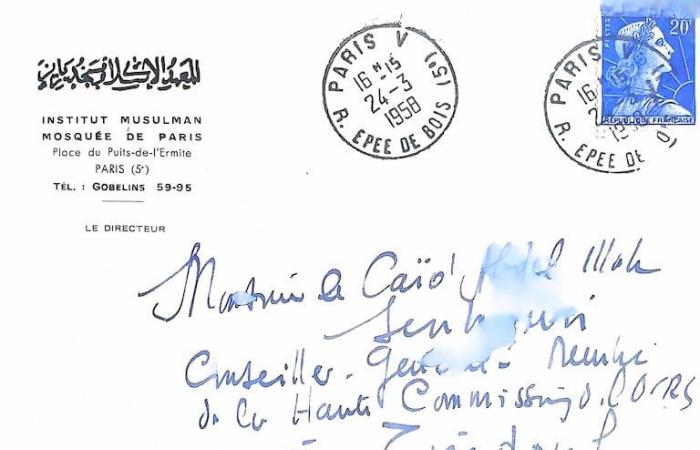 للمعهد الإسلامي بمسجد باريز
INSTITUT MUSULMAN
MOSQUÉE DE PARIS
Place du Puits-de-l'Ermite
PARIS (5e)
TÉL. : GOBELINS 59-95
LE DIRECTEUR
PARIS V (5e)
16 H -15
24-3
1958
R. EPEE DE BOIS
PARIS
16
2
19
R. EPEE DE
POSTES
20F
REPUBLIQUE FRANÇAISE
Monsieur le Caïd Abdel Illah
Conseiller-Général Membre
de la Haute Commission d. l'OCRS